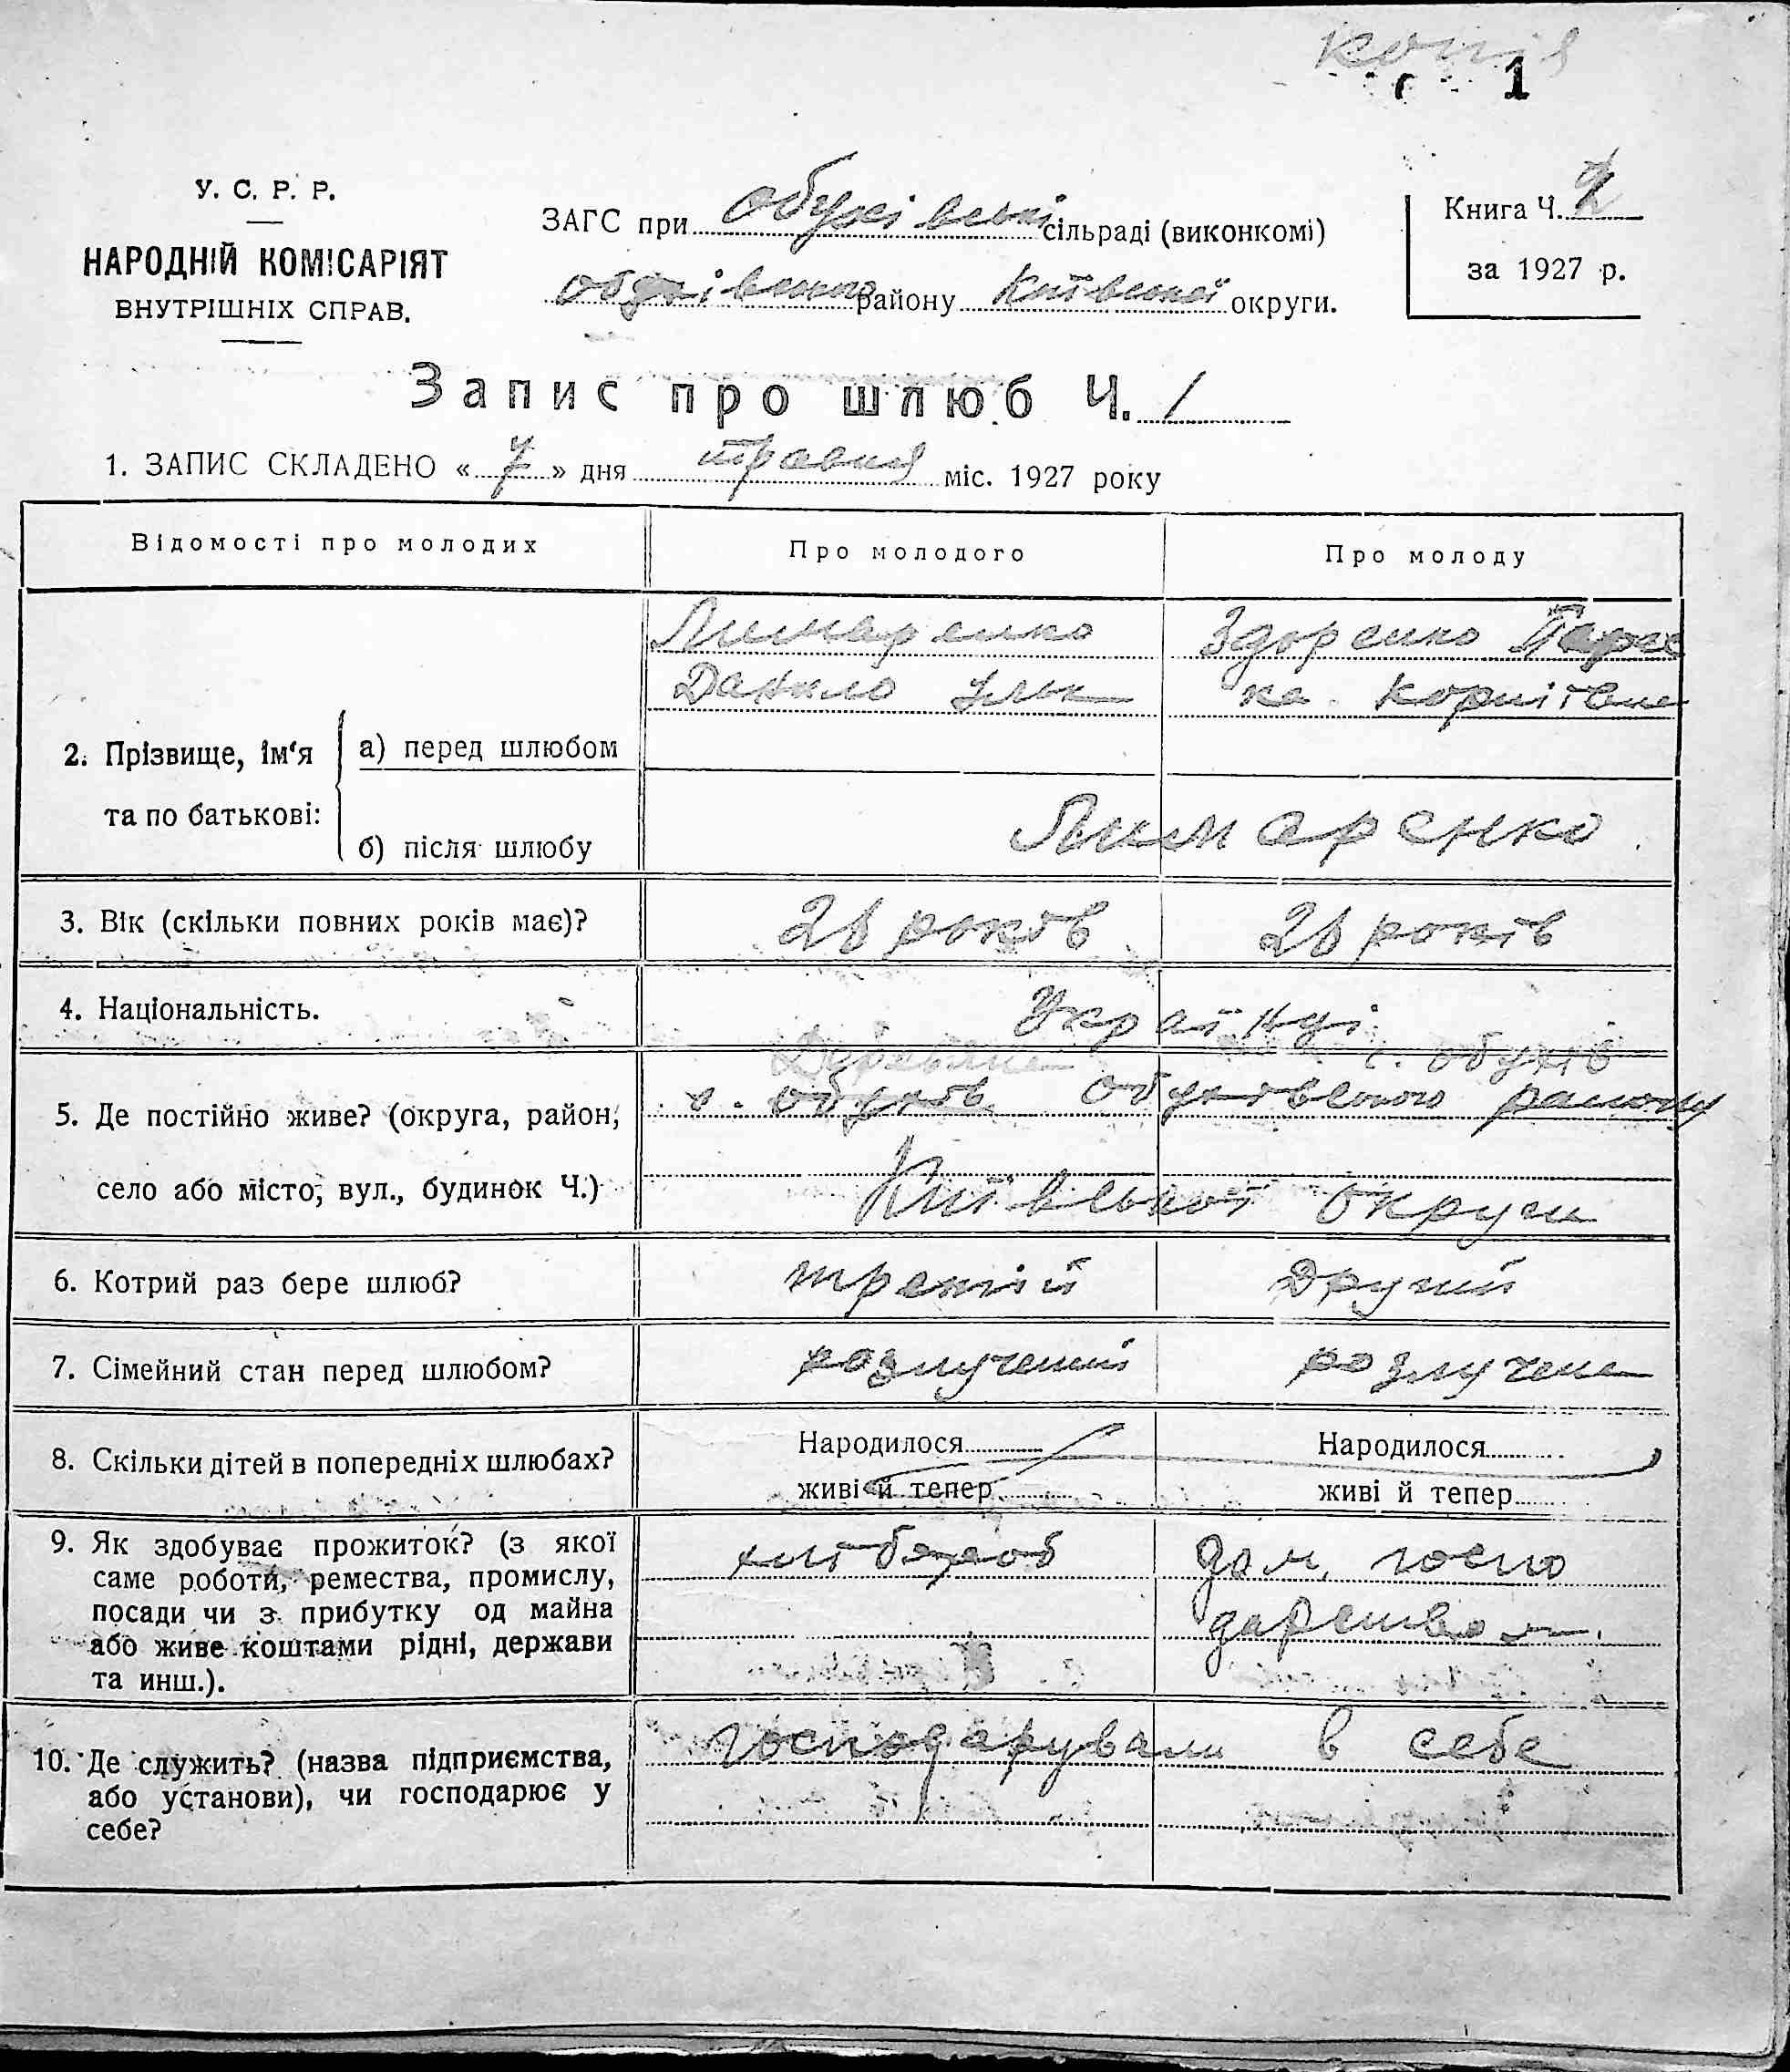 копія
1
У. С. Р. Р.
НАРОДНІЙ КОМІСАРІЯТ
ВНУТРІШНІХ СПРАВ.
ЗАГС при Обухівські сільраді (виконкомі)
Обухівського району Київської округи.
Книга Ч. 2
за 1927 р.
Запис про шлюб Ч. 1
1. ЗАПИС СКЛАДЕНО « 7 » дня травня міс. 1927 року
Відомості про молодих
Про молодого
Про молоду
2. Прізвище, ім‘я та по батькові:
а) перед шлюбом
Лимаренко
Данило Ульк
Здоренко Парас
ка Корнієвна
б) після шлюбу
Лимаренко
3. Вік (скільки повних років має)?
28 років
28 років
4. Національність.
Українці
5. Де постійно живе? (округа, район,
село або місто, вул., будинок Ч.)
Деревяне
с. Обухів
с. Обухів Обухівського району
Київської округи
6. Котрий раз бере шлюб?
третій
Другий
7. Сімейний стан перед шлюбом?
розлучений
розлучена
8. Скільки дітей в попередніх шлюбах?
Народилося
живі й тепер
Народилося
живі й тепер
9. Як здобуває прожиток? (з якої
саме роботи, ремества, промислу,
посади чи з прибутку од майна
або живе коштами рідні, держави
та инш.).
хлібороб
дом. госпо
дарством.
10. Де служить? (назва підприємства,
або установи), чи господарює у
себе?
господарували в себе